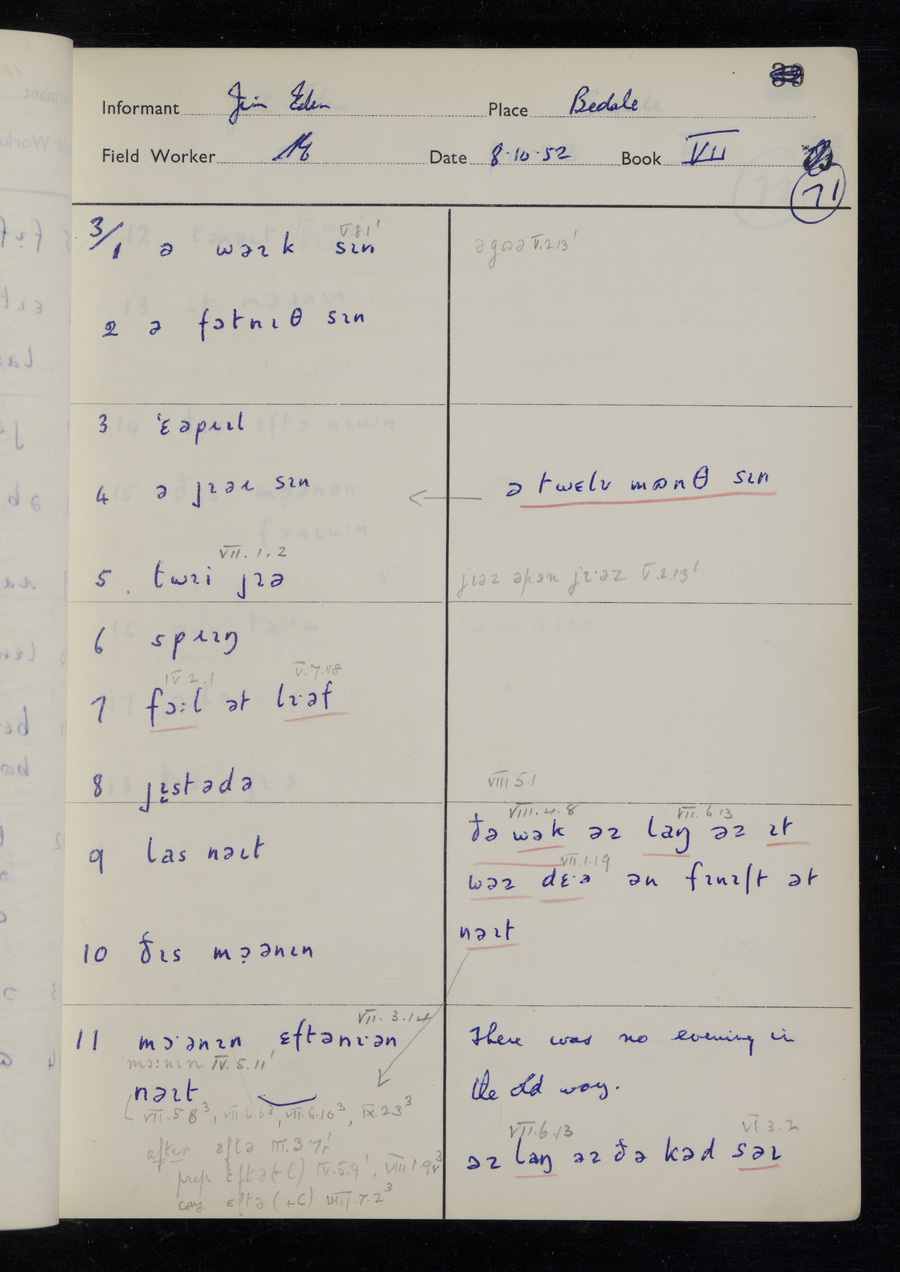 Informant Jim Eden Place Bedale
Field Worker Date 8·10·52 Book VII
71
V.8.1'
3/1 ə wəɪk sɪn
əgɒə V.2.13'
2 ə fɔtnɪθ sɪn
3 'ɛəpɹɪl
4 ə jɪəɹ sɪn
ə twɛlv mɒnθ sɪn
VII.1.2
5. twɪi jɪə
V.2.13'
6 spɹɪŋ
IV.2.1 V.7.18
7 fɔ:l ət lɪ·əf
8 jɪ̣stədə
VIII.5.1
VIII.4.8 VII.6.13
9 las nəɪt
ðə wək əz laŋ əz ɪt
VII.1.19
wəz dɛ·ə ən fɪnɪʃt ət
nəɪt
10 ðɪs mɔ̣ənɪn
VII.3.14
11 mɔ·ənɪn ɛftənɪ·ən
mɔ:nɪn IV.5.11'
nəɪt
VII.5.8³, VII.6.6³, VII.6.10³, IX.2.3³
after ɛftə III.3.7'
prep ɛftə(+C) IV.5.9', VIII.1.9v³
conj ɛftə (+C) VIII.7.2³
There was no evening in
the old way.
VII.6.13 VI.3.2
əz laŋ əz ðə kəd səɪ